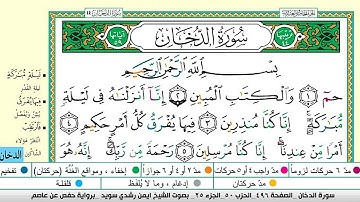 سُورَةُ الدُّخَانِ
بِسْمِ اللَّهِ الرَّحْمَٰنِ الرَّحِيمِ
حمٓ ۝١ وَالْكِتَابِ الْمُبِينِ ۝٢ إِنَّا أَنزَلْنَاهُ فِي لَيْلَةٍ
مُّبَارَكَةٍ ۚ إِنَّا كُنَّا مُنذِرِينَ ۝٣ فِيهَا يُفْرَقُ كُلُّ أَمْرٍ حَكِيمٍ ۝٤
أَمْرًا مِّنْ عِندِنَا ۚ إِنَّا كُنَّا مُرْسِلِينَ ۝٥ رَحْمَةً مِّن رَّبِّكَ ۚ إِنَّهُ هُوَ
لَيْلَةٍ مُّبَارَكَةٍ
ليلة القدر
فِيهَا يُفْرَقُ
فَارْتَقِبْ
الدخان
مدّ ٦ حركات لزوما
مدّ ٢ أو ٤ أو ٦ جوازاً
إخفاء ، ومواقع الغُنَّة (حركتان)
تفخيم
مدّ حركتان
إدغام ، وما لا يُلفَظ
قلقلة
سورة الدخان _ الصفحة ٤٩٦ _ الحزب ٥٠ _ الجزء ٢٥ _ بصوت الشيخ أيمن رشدي سويد _ برواية حفص عن عاصم